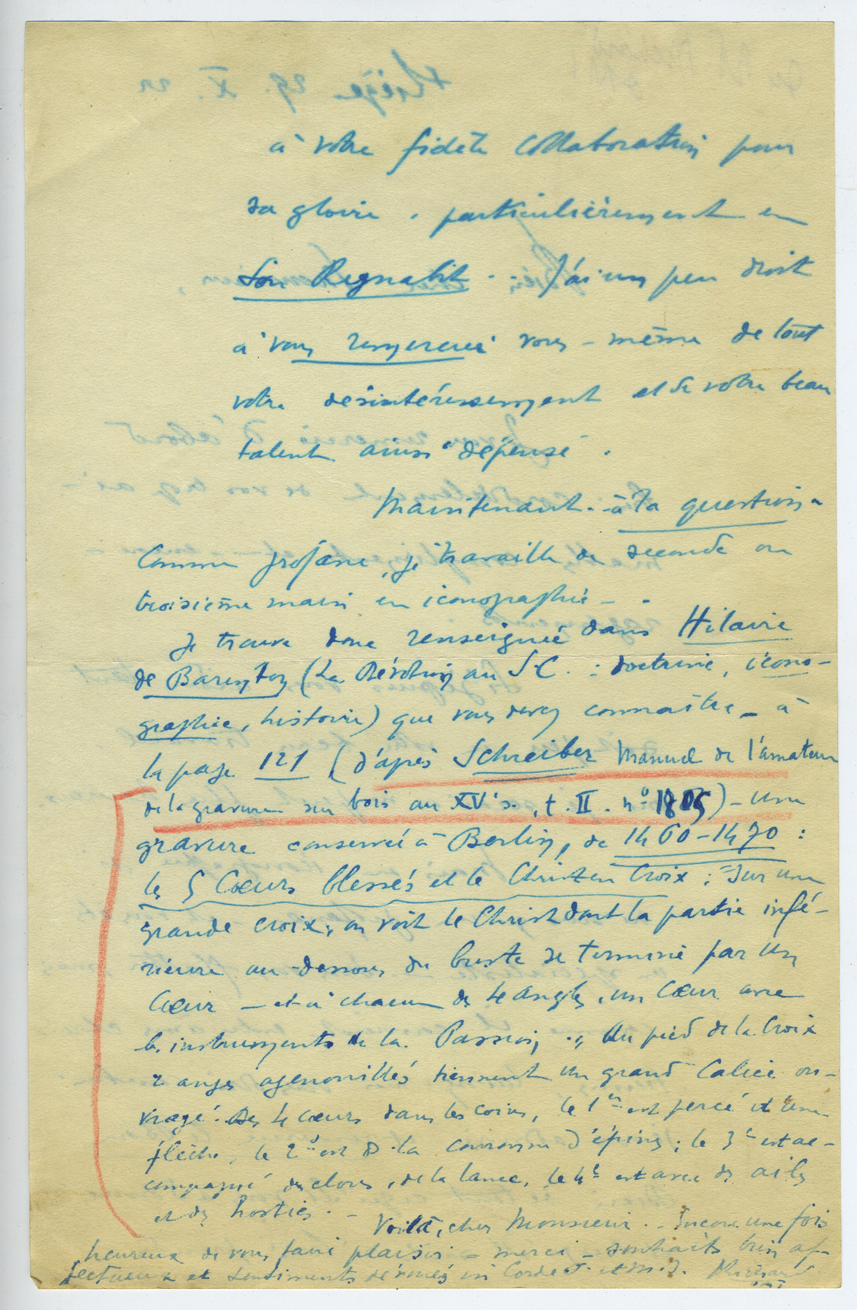 à votre fidèle collaboration pour
sa gloire, particulièrement en
Son Regnabit. J'ai un peu droit
à vous remercier vous-même de tout
votre désintéressement et de votre beau
talent ainsi dépensé.
Maintenant à la question.
Comme profane, je travaille de seconde ou
troisième main en iconographie -.
Je trouve donc renseignée dans Hilaire
de Barenton (La Dévotion au S-C. : doctrine, icono-
graphie, histoire) que vous devez connaître - à
la page 121 (d'après Schreiber Manuel de l'amateur
de la gravure sur bois au XVe s., t. II. n° 1805) - une
gravure conservée à Berlin, de 1460-1470 :
les 5 Cœurs blessés et le Christ en Croix : "Sur une
grande croix, on voit le Christ dont la partie infé-
rieure au-dessous du buste se termine par un
Cœur - et à chacun des 4 angles, un Cœur avec
les instruments de la Passion. Au pied de la Croix
2 anges agenouillés tiennent un grand Calice ou-
vragé. Des 4 cœurs dans les coins, le 1er est percé d'une
flèche, le 2d est la couronne d'épines ; le 3e est ac-
compagné des clous, de la lance, le 4e est avec des ailes
et des hosties. -
Voilà, cher Monsieur. - Encore une fois
heureux de vous faire plaisir - merci - souhaits bien af-
fectueux et sentiments dévoués in Corde J. et M. J.